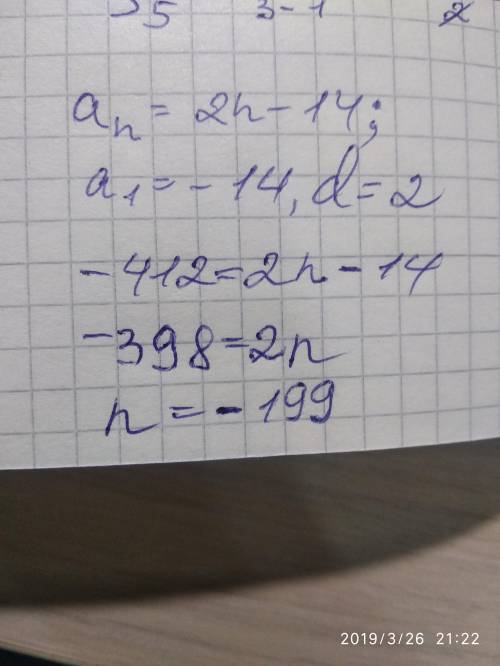 5 3-1 2
aₙ = 2n - 14;
a₁ = - 14, d = 2
- 412 = 2n - 14
- 398 = 2n
n = - 199
2019/3/26 21:22